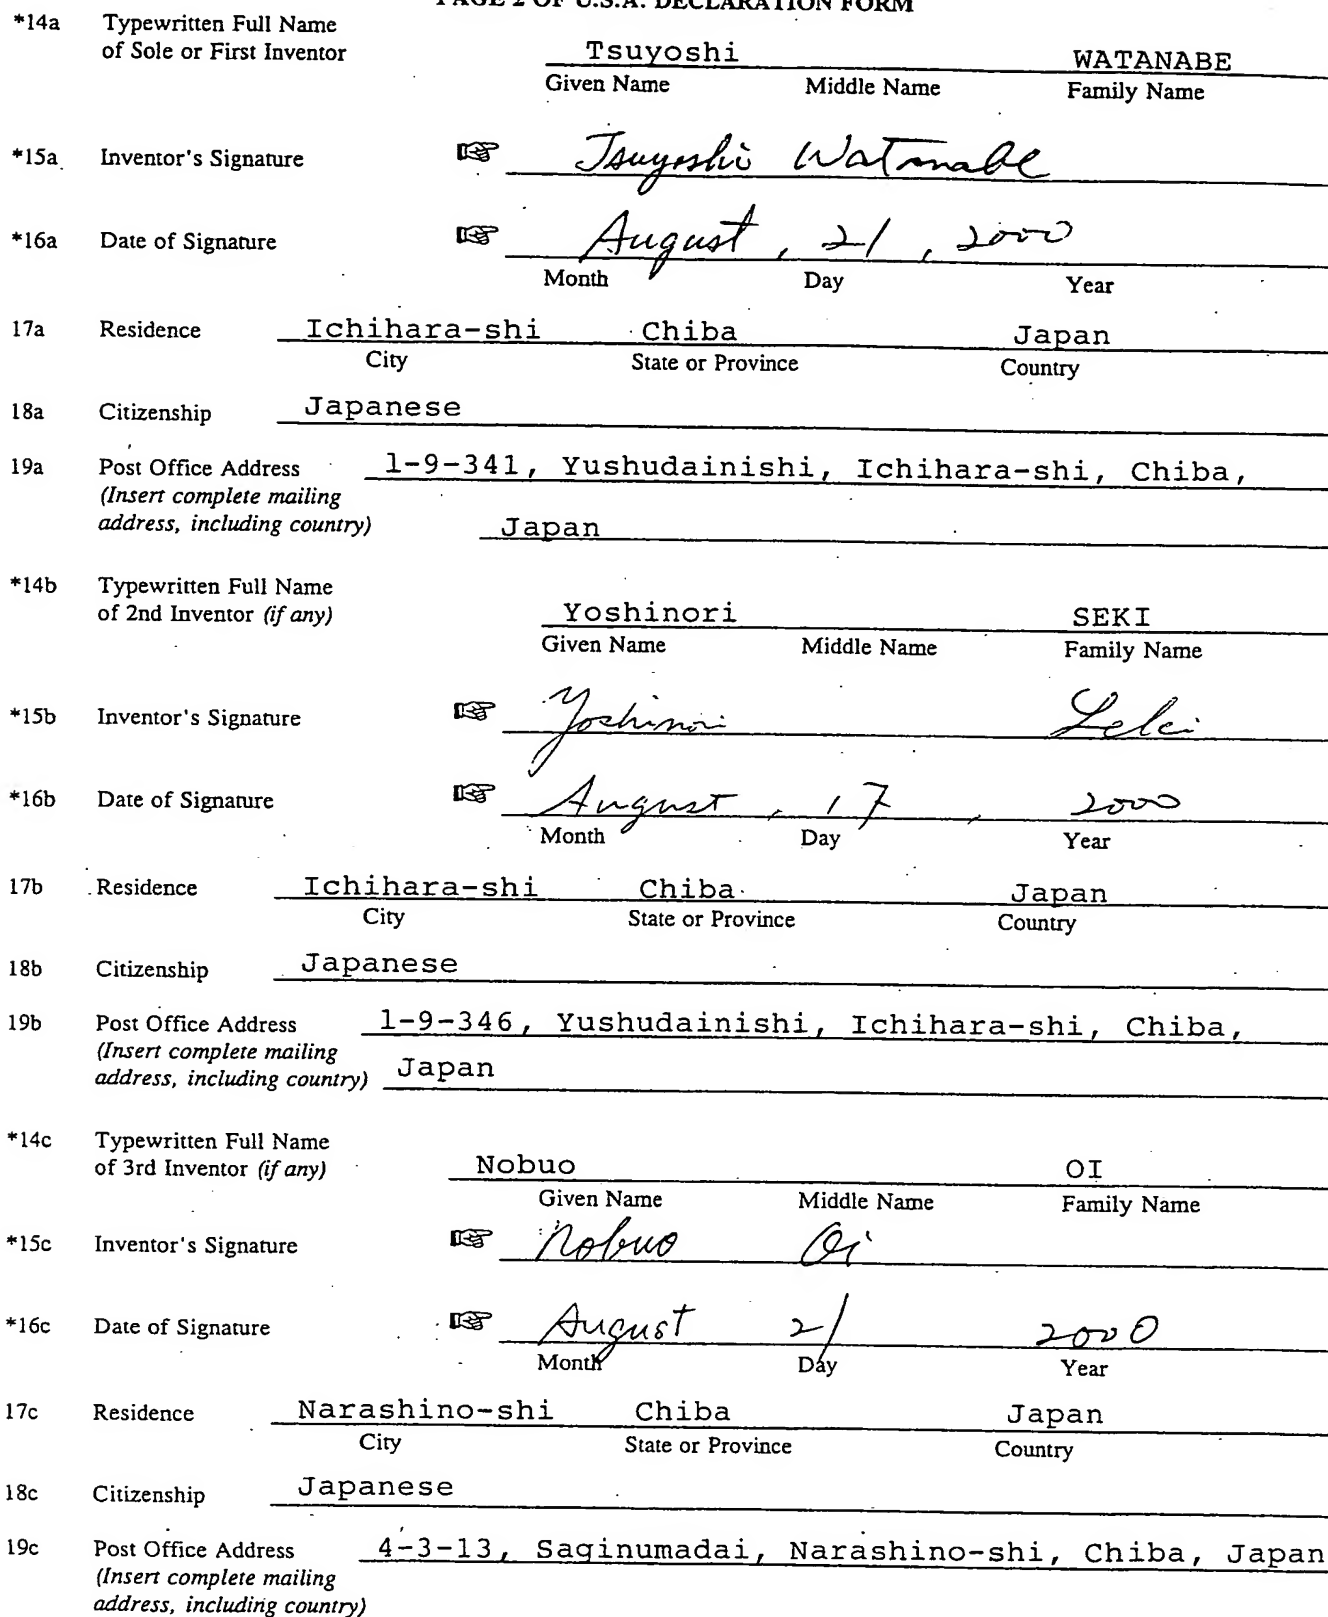 PAGE 2 OF U.S.A. DECLARATION FORM
*14a Typewritten Full Name
of Sole or First Inventor Tsuyoshi WATANABE
Given Name Middle Name Family Name
*15a Inventor's Signature Tsuyoshi Watanabe
*16a Date of Signature August, 21, 2000
Month Day Year
17a Residence Ichihara-shi Chiba Japan
City State or Province Country
18a Citizenship Japanese
19a Post Office Address 1-9-341, Yushudainishi, Ichihara-shi, Chiba,
(Insert complete mailing
address, including country) Japan
*14b Typewritten Full Name
of 2nd Inventor (if any) Yoshinori SEKI
Given Name Middle Name Family Name
*15b Inventor's Signature Yoshinori Seki
*16b Date of Signature August, 17, 2000
Month Day Year
17b Residence Ichihara-shi Chiba Japan
City State or Province Country
18b Citizenship Japanese
19b Post Office Address 1-9-346, Yushudainishi, Ichihara-shi, Chiba,
(Insert complete mailing
address, including country) Japan
*14c Typewritten Full Name
of 3rd Inventor (if any) Nobuo OI
Given Name Middle Name Family Name
*15c Inventor's Signature Nobuo Oi
*16c Date of Signature August 21 2000
Month Day Year
17c Residence Narashino-shi Chiba Japan
City State or Province Country
18c Citizenship Japanese
19c Post Office Address 4-3-13, Saginumadai, Narashino-shi, Chiba, Japan
(Insert complete mailing
address, including country)